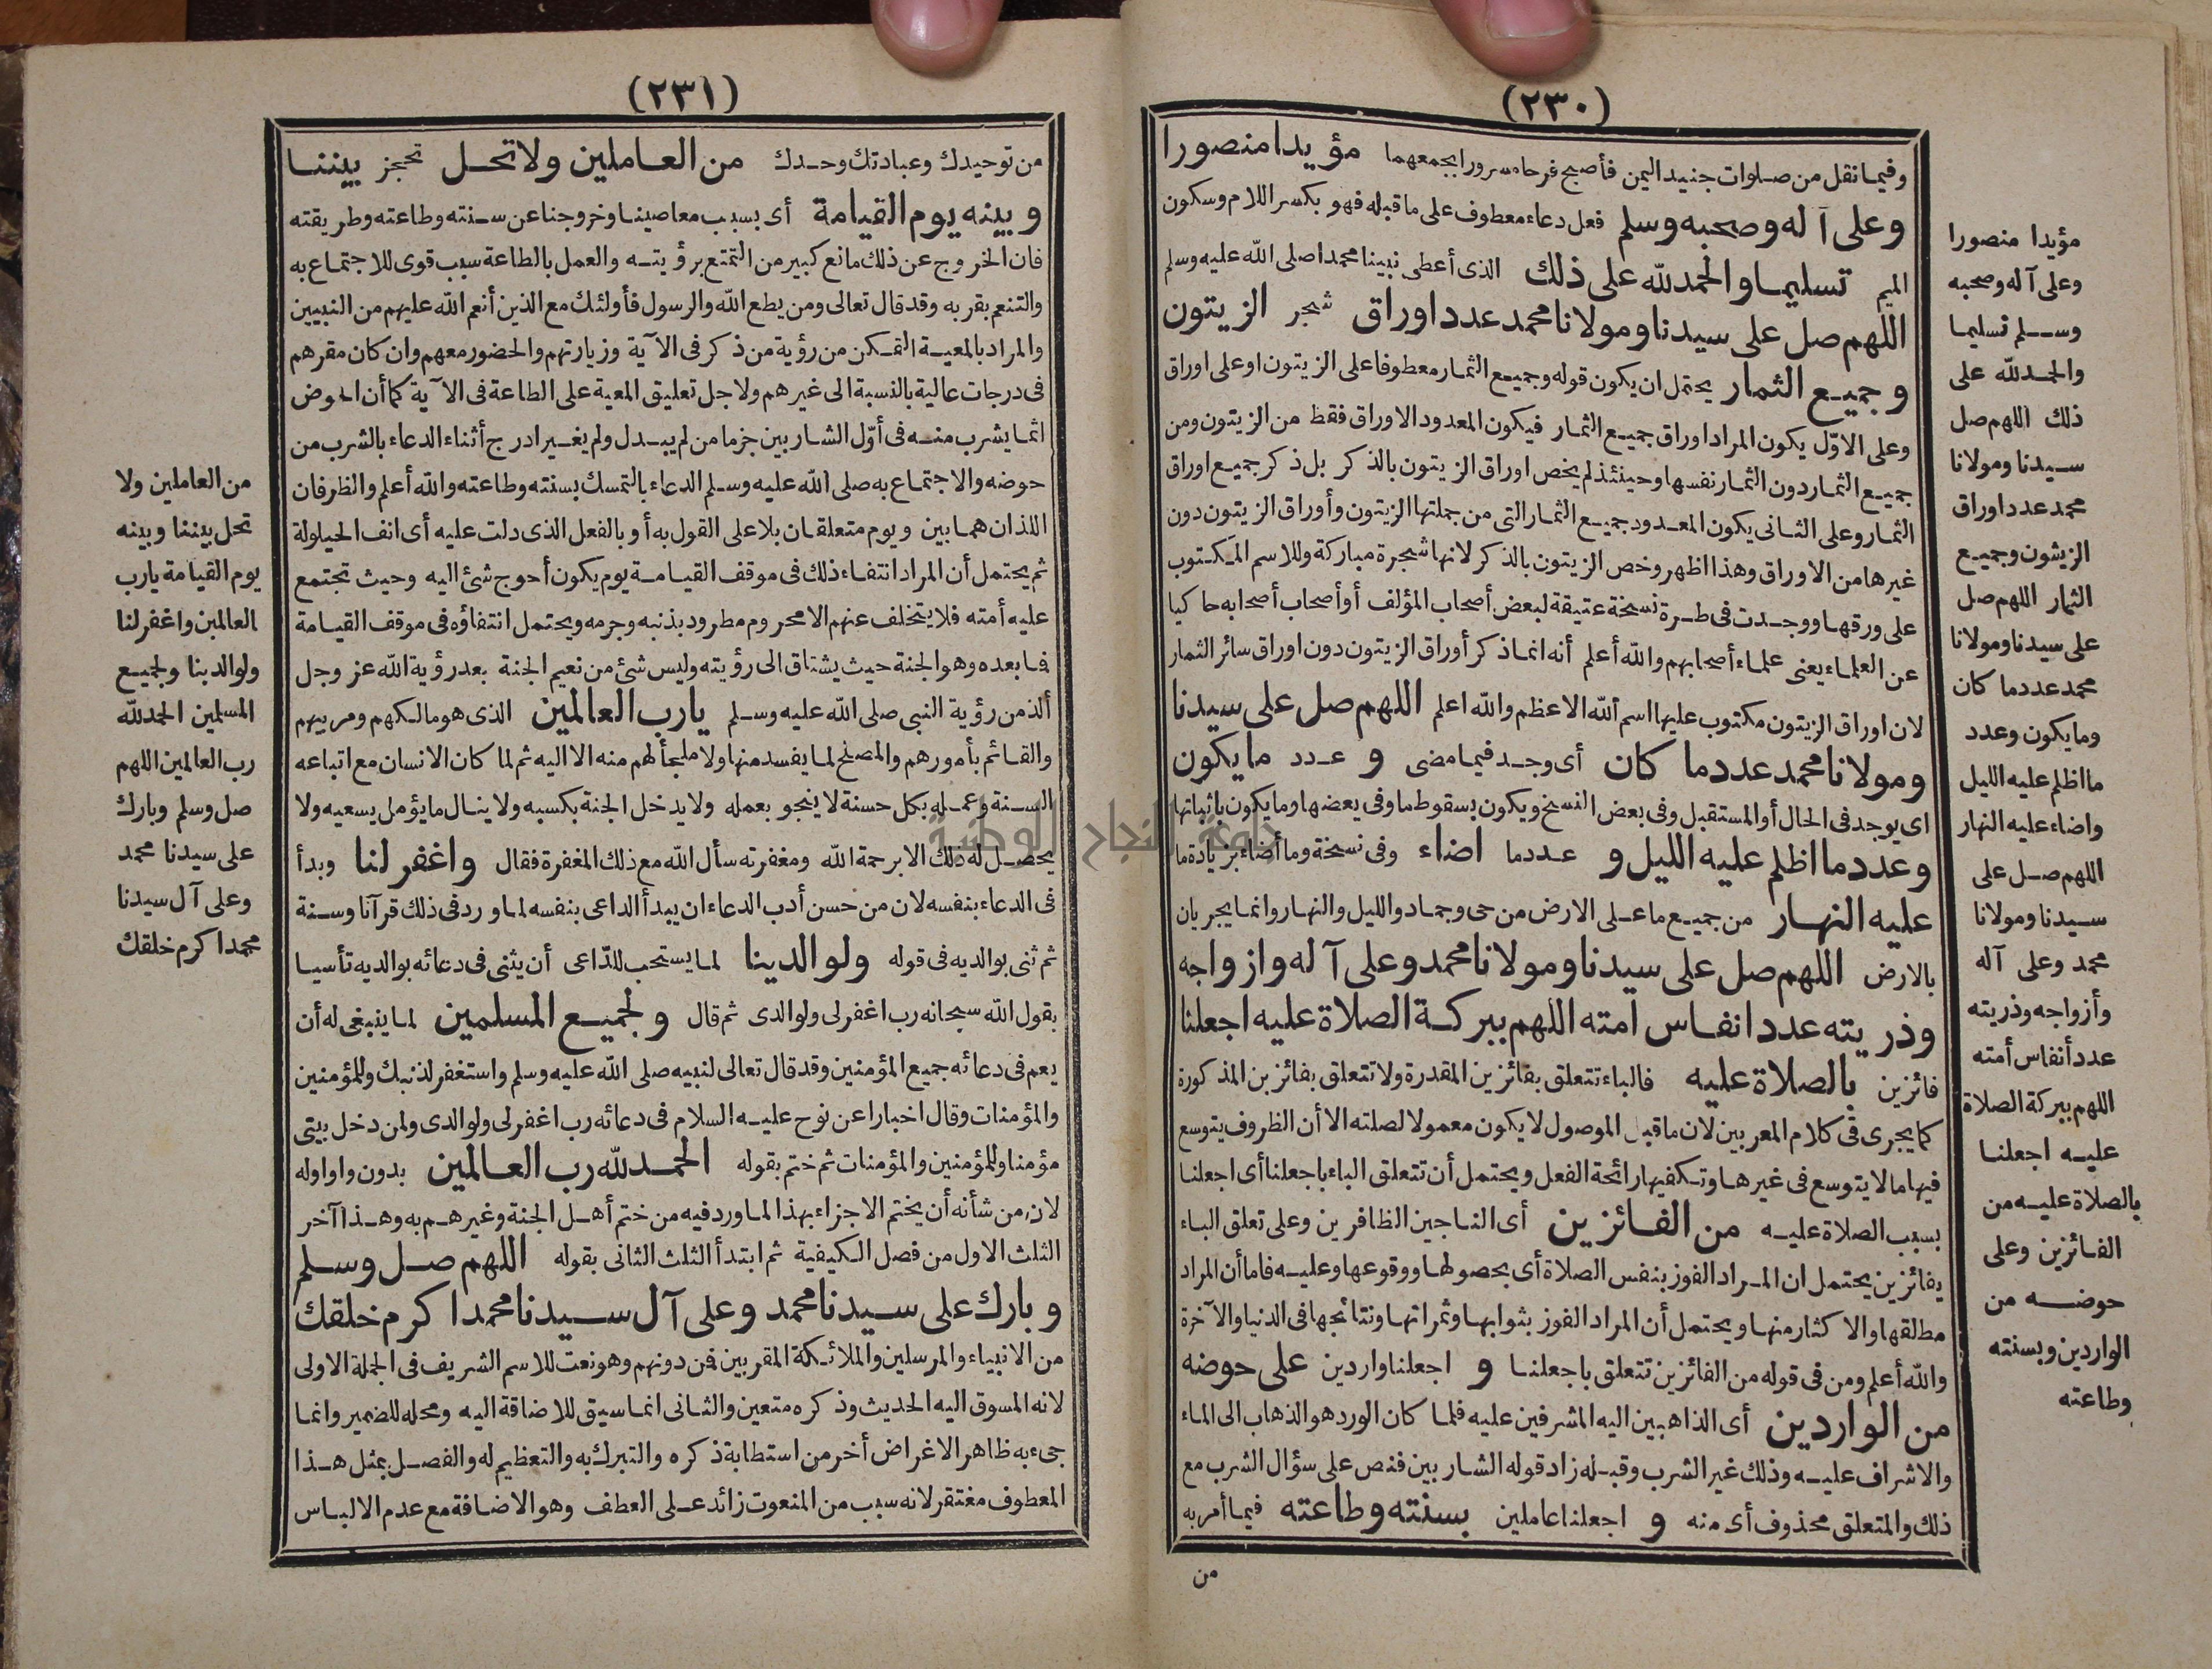 (٢٣٠)
وفيما نقل من صلوات جنيد اليمن فأصبح فرحا مسرورا بجمعهما مؤيدا منصورا
وعلى آله وصحبه وسلم فعل دعاء معطوف على ما قبله فهو بكسر اللام وسكون
الميم تسليما والحمد لله على ذلك الذى أعطى نبينا محمدا صلى الله عليه وسلم
اللهم صل على سيدنا ومولانا محمد عدد اوراق شجر الزيتون
وجميع الثمار يحتمل ان يكون قوله وجميع الثمار معطوفا على الزيتون او على اوراق
وعلى الاوّل يكون المراد اوراق جميع الثمار فيكون المعدود الاوراق فقط من الزيتون ومن
جميع الثمار دون الثمار نفسها وحينئذ لم يخص اوراق الزيتون بالذكر بل ذكر جميع اوراق
الثمار وعلى الثانى يكون المعدود جميع الثمار التى من جملتها الزيتون وأوراق الزيتون دون
غيرها من الاوراق وهذا اظهر وخص الزيتون بالذكر لانها شجرة مباركة وللاسم المكتوب
على ورقها ووجدت فى طرة نسخة عتيقة لبعض أصحاب المؤلف أو أصحاب أصحابه حاكيا
عن العلماء يعنى علماء أصحابهم والله أعلم أنه انما ذكر أوراق الزيتون دون اوراق سائر الثمار
لان اوراق الزيتون مكتوب عليها اسم الله الاعظم والله اعلم اللهم صل على سيدنا
ومولانا محمد عدد ما كان أى وجد فيما مضى و عدد ما يكون
اى يوجد فى الحال أو المستقبل وفى بعض النسخ ويكون بسقوط ما وفى بعضها وما يكون باثباتها
وعدد ما اظلم عليه الليل و عدد ما اضاء وفى نسخة وما أضاء بزيادة ما
عليه النهار من جميع ما على الارض من حى وجماد والليل والنهار وانما يجريان
بالارض اللهم صل على سيدنا ومولانا محمد وعلى آله وازواجه
وذريته عدد انفاس امته اللهم ببركة الصلاة عليه اجعلنا
فائزين بالصلاة عليه فالباء تتعلق بفائزين المقدرة ولا تتعلق بفائزين المذكورة
كما يجرى فى كلام المعربين لان ما قبل الموصول لا يكون معمولا لصلته الا أن الظروف يتوسع
فيها ما لا يتوسع فى غيرها وتكفيها رائحة الفعل ويحتمل أن تتعلق الباء باجعلنا أى اجعلنا
بسبب الصلاة عليه من الفائزين أى الناجين الظافرين وعلى تعلق الباء
بفائزين يحتمل ان المراد الفوز بنفس الصلاة أى بحصولها ووقوعها وعليه فاما أن المراد
مطلقها والاكثار منها ويحتمل أن المراد الفوز بثوابها وثمراتها ونتائجها فى الدنيا والآخرة
والله أعلم ومن فى قوله من الفائزين تتعلق باجعلنا و اجعلنا واردين على حوضه
من الواردين أى الذاهبين اليه المشرفين عليه فلما كان الورد هو الذهاب الى الماء
والاشراف عليه وذلك غير الشرب وقبله زاد قوله الشاربين فنص على سؤال الشرب مع
ذلك والمتعلق محذوف أى منه و اجعلنا عاملين بسنته وطاعته فيما أمر به
من
مؤيدا منصورا
وعلى آله وصحبه
وسلم تسليما
والحمد لله على
ذلك اللهم صل
سيدنا ومولانا
محمد عدد اوراق
الزيتون وجميع
الثمار اللهم صل
على سيدنا ومولانا
محمد عدد ما كان
وما يكون وعدد
ما اظلم عليه الليل
واضاء عليه النهار
اللهم صل على
سيدنا ومولانا
محمد وعلى آله
وأزواجه وذريته
عدد أنفاس أمته
اللهم ببركة الصلاة
عليه اجعلنا
بالصلاة عليه من
الفائزين وعلى
حوضه من
الواردين وبسنته
وطاعته
(٢٣١)
من توحيدك وعبادتك وحدك من العاملين ولا تحل تحجز بيننا
وبينه يوم القيامة أى بسبب معاصينا وخروجنا عن سنته وطاعته وطريقته
فان الخروج عن ذلك مانع كبير من التمتع برؤيته والعمل بالطاعة سبب قوى للاجتماع به
والتنعم بقربه وقد قال تعالى ومن يطع الله والرسول فأولئك مع الذين أنعم الله عليهم من النبيين
والمراد بالمعية التمكن من رؤية من ذكر فى الآية وزيارتهم والحضور معهم وان كان مقرهم
فى درجات عالية بالنسبة الى غيرهم ولاجل تعليق المعية على الطاعة فى الآية كما أن الحوض
انما يشرب منه فى أوّل الشاربين جزما من لم يبدل ولم يغير ادرج أثناء الدعاء بالشرب من
حوضه والاجتماع به صلى الله عليه وسلم الدعاء بالتمسك بسنته وطاعته والله أعلم والظرفان
اللذان هما بين ويوم متعلقان بلا على القول به أو بالفعل الذى دلت عليه أى انف الحيلولة
ثم يحتمل أن المراد انتفاء ذلك فى موقف القيامة يوم يكون أحوج شئ اليه وحيث تجتمع
عليه أمته فلا يتخلف عنهم الا محروم مطرود بذنبه وجرمه ويحتمل انتفاؤه فى موقف القيامة
فما بعده وهو الجنة حيث يشتاق الى رؤيته وليس شئ من نعيم الجنة بعد رؤية الله عز وجل
ألذ من رؤية النبى صلى الله عليه وسلم يارب العالمين الذى هو مالكهم ومربيهم
والقائم بأمورهم والمصلح لما يفسد منها ولا ملجأ لهم منه الا اليه ثم لما كان الانسان مع اتباعه
السنة وعمله بكل حسنة لا ينجو بعمله ولا يدخل الجنة بكسبه ولا ينال ما يؤمل بسعيه ولا
يحصل له ذلك الا برحمة الله ومغفرته سأل الله مع ذلك المغفرة فقال واغفر لنا وبدأ
فى الدعاء بنفسه لان من حسن أدب الدعاء ان يبدأ الداعى بنفسه لما ورد فى ذلك قرآنا وسنة
ثم ثنى بوالديه فى قوله ولوالدينا لما يستحب للدّاعى أن يثنى فى دعائه بوالديه تأسيا
بقول الله سبحانه رب اغفر لى ولوالدى ثم قال ولجميع المسلمين لما ينبغى له أن
يعم فى دعائه جميع المؤمنين وقد قال تعالى لنبيه صلى الله عليه وسلم واستغفر لذنبك وللمؤمنين
والمؤمنات وقال اخبارا عن نوح عليه السلام فى دعائه رب اغفر لى ولوالدى ولمن دخل بيتى
مؤمنا وللمؤمنين والمؤمنات ثم ختم بقوله الحمد لله رب العالمين بدون واو اوله
لان من شأنه أن يختم الاجزاء بهذا لما ورد فيه من ختم أهل الجنة وغيرهم به وهذا آخر
الثلث الاول من فصل الكيفية ثم ابتدأ الثلث الثانى بقوله اللهم صل وسلم
وبارك على سيدنا محمد وعلى آل سيدنا محمد اكرم خلقك
من الانبياء والمرسلين والملائكة المقربين فمن دونهم وهو نعت للاسم الشريف فى الجملة الاولى
لانه المسوق اليه الحديث وذكره متعين والثانى انما سيق للاضافة اليه ومحله للضمير وانما
جىء به ظاهر الاغراض أخر من استطابة ذكره والتبرك به والتعظيم له والفصل بمثل هذا
المعطوف مغتفر لانه سبب من المنعوت زائد على العطف وهو الاضافة مع عدم الالباس
من العاملين ولا
تحل بيننا وبينه
يوم القيامة يارب
العالمين واغفر لنا
ولوالدينا ولجميع
المسلمين الحمد لله
رب العالمين اللهم
صل وسلم وبارك
على سيدنا محمد
وعلى آل سيدنا
محمد اكرم خلقك
جامعة النجاح الوطنية